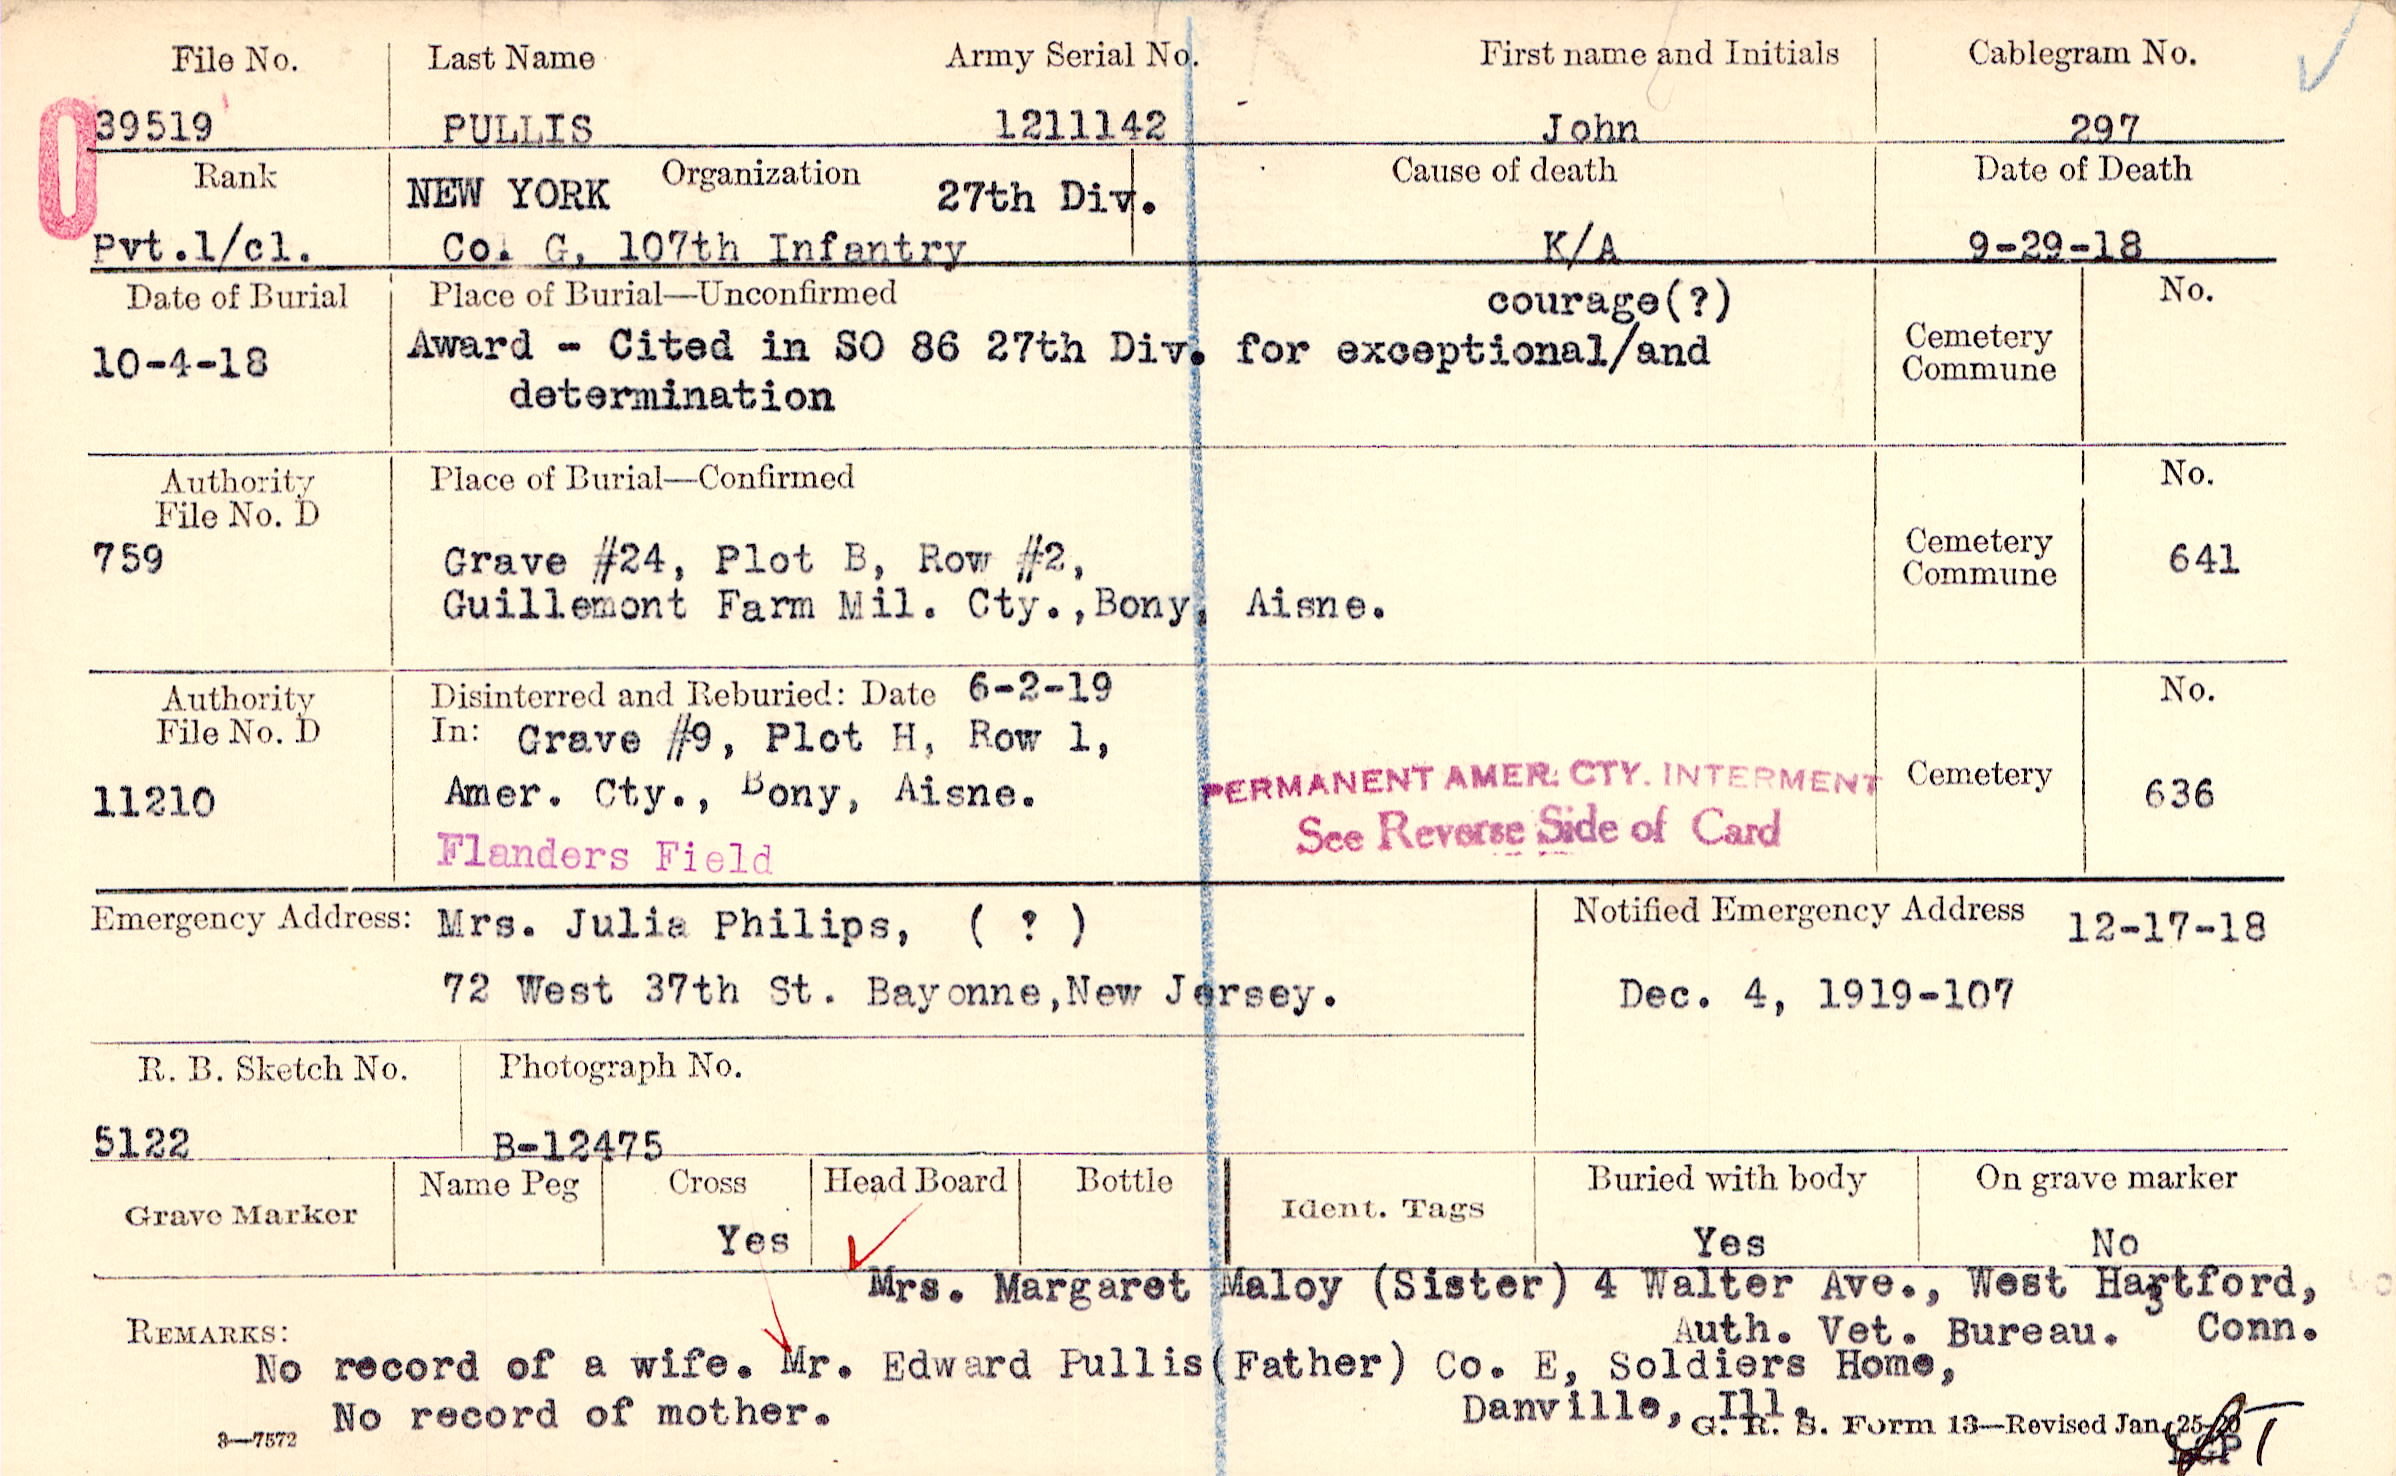 File No. Last Name Army Serial No. First name and Initials Cablegram No.
39519 PULLIS 1211142 John 297
Rank NEW YORK Organization 27th Div. Cause of death Date of Death
Pvt.1/cl. Co. G, 107th Infantry K/A 9-29-18
Date of Burial Place of Burial—Unconfirmed courage(?) No.
10-4-18 Award - Cited in SO 86 27th Div. for exceptional/and Cemetery
determination Commune
Authority Place of Burial—Confirmed No.
File No. D
759 Grave #24, Plot B, Row #2, Cemetery 641
Guillemont Farm Mil. Cty.,Bony, Aisne. Commune
Authority Disinterred and Reburied: Date 6-2-19 No.
File No. D In: Grave #9, Plot H, Row 1,
11210 Amer. Cty., Bony, Aisne. PERMANENT AMER. CTY. INTERMENT Cemetery 636
Flanders Field See Reverse Side of Card
Emergency Address: Mrs. Julia Philips, ( ? ) Notified Emergency Address 12-17-18
72 West 37th St. Bayonne,New Jersey. Dec. 4, 1919-107
R. B. Sketch No. Photograph No.
5122 B-12475
Grave Marker Name Peg Cross Head Board Bottle Ident. Tags Buried with body On grave marker
Yes Yes No
Mrs. Margaret Maloy (Sister) 4 Walter Ave., West Hartford,
REMARKS: Auth. Vet. Bureau. Conn.
No record of a wife. Mr. Edward Pullis(Father) Co. E, Soldiers Home,
No record of mother. Danville, Ill.
3—7572 G. R. S. Form 13—Revised Jan. 25-20